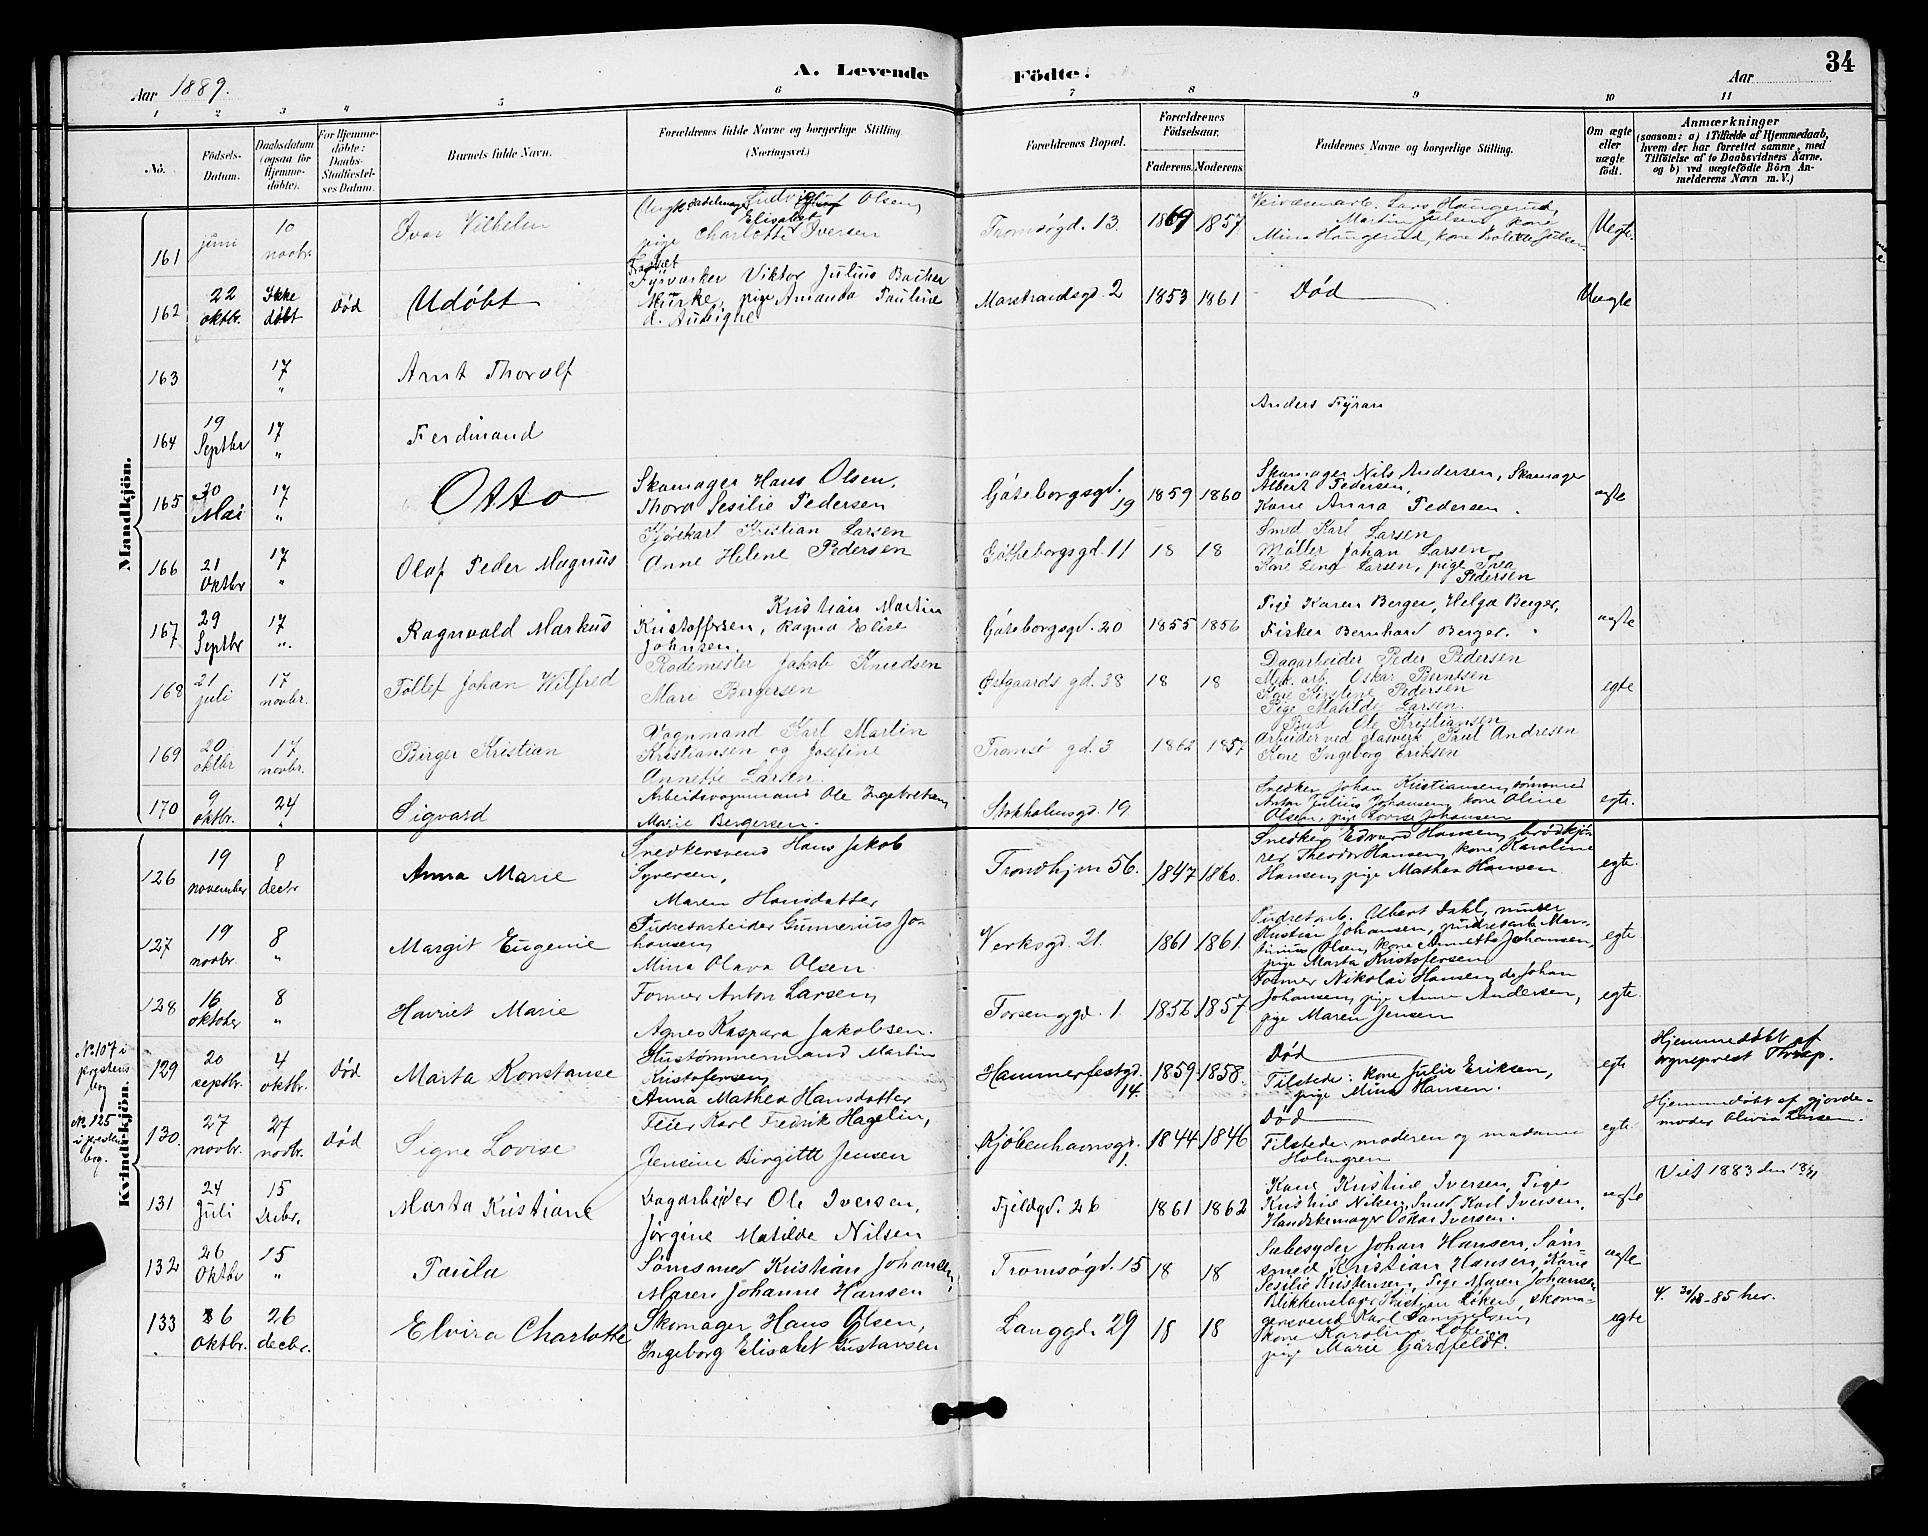 A. Levende
Födte.
34
Aar 1889.
Aar
1 2 3 4 5 6 7 8 9 10 11
No.
Födsels-Datum.
Daabsdatum (ogsaa for Hjemmedöbte).
For Hjemmedöbte: Daabs-Stadfæstelses Datum.
Barnets fulde Navn.
Forældrenes fulde Navne og borgerlige Stilling. (Næringsvei.)
Forældrenes Bopæl.
Forældrenes Födselsaar.
Faderens. Moderens.
Faddernes Navne og borgerlige Stilling.
Om ægte eller uægte födt.
Anmærkninger
(saasom: a) i Tilfælde af Hjemmedaab, hvem der har forrettet samme, med Tilföielse af to Daabsvidners Navne, og b) ved uægtefödte Börn Anmelderens Navn m. V.)
Mandkjön.
161 juni 10 novbr. Ivar Vilhelm
Ungk. Ludvig Olsen,
pige Elisabet Charlotte Iversen
Tromsøgd. 13. 1869 1857
Lars Haugerud,
Martin Julsen, kone
Mina Haugerud, kone
Uegte.
162 22 oktbr. Ikke døbt Død Udøbt
Fyrværker Viktor Julius
pige Amanda Pauline
d. Aubigne
Marstrandsgd. 2 1853 1861 Død Uægte
163 17 " Arnt Thorolf
164 19 Septbr 17 " Ferdinand
Anders Fyran
165 30 Mai 17 " Otto
Skomager Hans Olsen,
Thora Sesilie Pedersen
Göteborgsgd. 19 1859 1860
Skomager Nils Andersen, Skomager
Albert Pedersen,
Kone Anna Pedersen.
ægte
166 21 Oktbr 17 " Olaf Peder Magnus
Kjørekarl Kristian Larsen
Anne Helene Pedersen
Götheborgsgd. 11 18 18
Smed Karl Larsen
Møller Johan Larsen
Kone Lena Larsen, pige Thea
Pedersen
167 29 Septbr 17 ". Ragnvald Markus
Kristian Martin
Kristoffersen, Ragna Elise
Johnsen.
Göteborgsgd. 20 1855 1856
Pige Karen Berger, Helga Berger,
Fisker Bernhard Berger.
ægte
168 21 juli 17 novbr. Tollef Johan Wilfred
Rodemester Jakob Knudsen
Mari Bergersen
Østgaards gd. 38 18 18
Dagarbeider Peder Pedersen
Mek. arb. Oskar Berntsen
Kone Kirstine Pedersen
Pige Matilde Larsen.
egte
169 20 oktbr 17 novbr. Birger Kristian
Vognmand Karl Martin
Kristiansen og Josefine
Annette Larsen.
Tromsø gd. 3 1862 1857
Bud Ole Kristiansen
Arbeider ved glasverk Paul Andresen
Kone Ingeborg Eriksen
170 9 oktbr. 24 " Sigvard
Arbeidsvognmand Ole Ingebretsen
Marie Bergersen.
Stokholmsgd. 19
Snedker Johan Kristiansen, sømsmed
Anton Julius Johansen, kone Oline
Olsen, pige Lovise Johansen
egte.
Kvindekjön.
126 19 november 8 decbr Anna Marie
Snedkersvend Hans Jakob
Syversen,
Maren Hansdatter
Trondhjm 56. 1847 1860.
Snedker Edvard Hansen, brødkjø-
rer Theodor Hansen, kone Karoline
Hansen, pige Mathea Hansen
egte.
127 19 novbr. 8 " Margit Eugenie
Pudretarbeider Gunnerius Jo-
hansen,
Mina Olava Olsen
Verksgd. 21. 1861 1861.
Pudretarb. Albert Dahl, murer
Kristian Johansen, pudretarb. Mar-
tinius Olsen, kone Annette Johansen,
pige Marta Kristofersen
egte
128 16 oktober 8 " Harriet Marie
Former Anton Larsen,
Agnes Kaspara Jakobsen.
Torsenggd. 1. 1856 1857
Former Nikolai Hansen, do Johan
Johansen, pige Anna Andersen,
pige Maren Jensen
egte.
No. 107 i prestens bog
129 20 septbr. 4 oktbr. Død Marta Konstanse
Hustømmermand Martin
Kristofersen,
Anna Mathea Hansdatter
Hammerfestgd. 14. 1859 1858.
Død
Tilstede: kone Julie Eriksen,
pige Mina Hansen.
egte
Hjemmedøbt af
sogneprest
No. 125 i prestens bog.
130. 27 novbr. 27 novbr. Død Signe Lovise
Feier Karl Fredrik Hagelin,
Jensine Birgitte Jensen
Kjøbenhavnsgd. 1. 1844 1846
Død
Tilstede: moderen og madame
Holmgren
egte
Hjemmedøbt af gjorde-
moder Olivia Larsen.
131 24 Juli 15 Decbr. Marta Kristiane
Dagarbeider Ole Iversen,
Jörgine Matilde Nilsen
Fjeldgd. 26 1861 1862
Kone Kristine Iversen, Pige
Kristine Nilsen, Smed Karl Iversen,
Handskemager Oskar Iversen.
ægte
Viet 1883 den
132 26 Oktbr 15 " Paula
Sömsmed Kristian Johansen,
Maren Johanne Hansen
Tromsögd. 15 18 18
Sæbesyder Johan Hansen, Söm-
smed Kristian Hansen, Kone
Sesilie Kristensen, Pige Maren Johansen
ægte
133 6 Oktbr. 26 decbr. Elvira Charlotte
Skomager Hans Olsen,
Ingeborg Elisabet Gustavsen
Langgd. 29 18 18
Blikkenslager Kristian Løken, skoma-
gersvend Karl Samuelsen,
kone Karoline
pige Marie Gårdfeldt.
egte